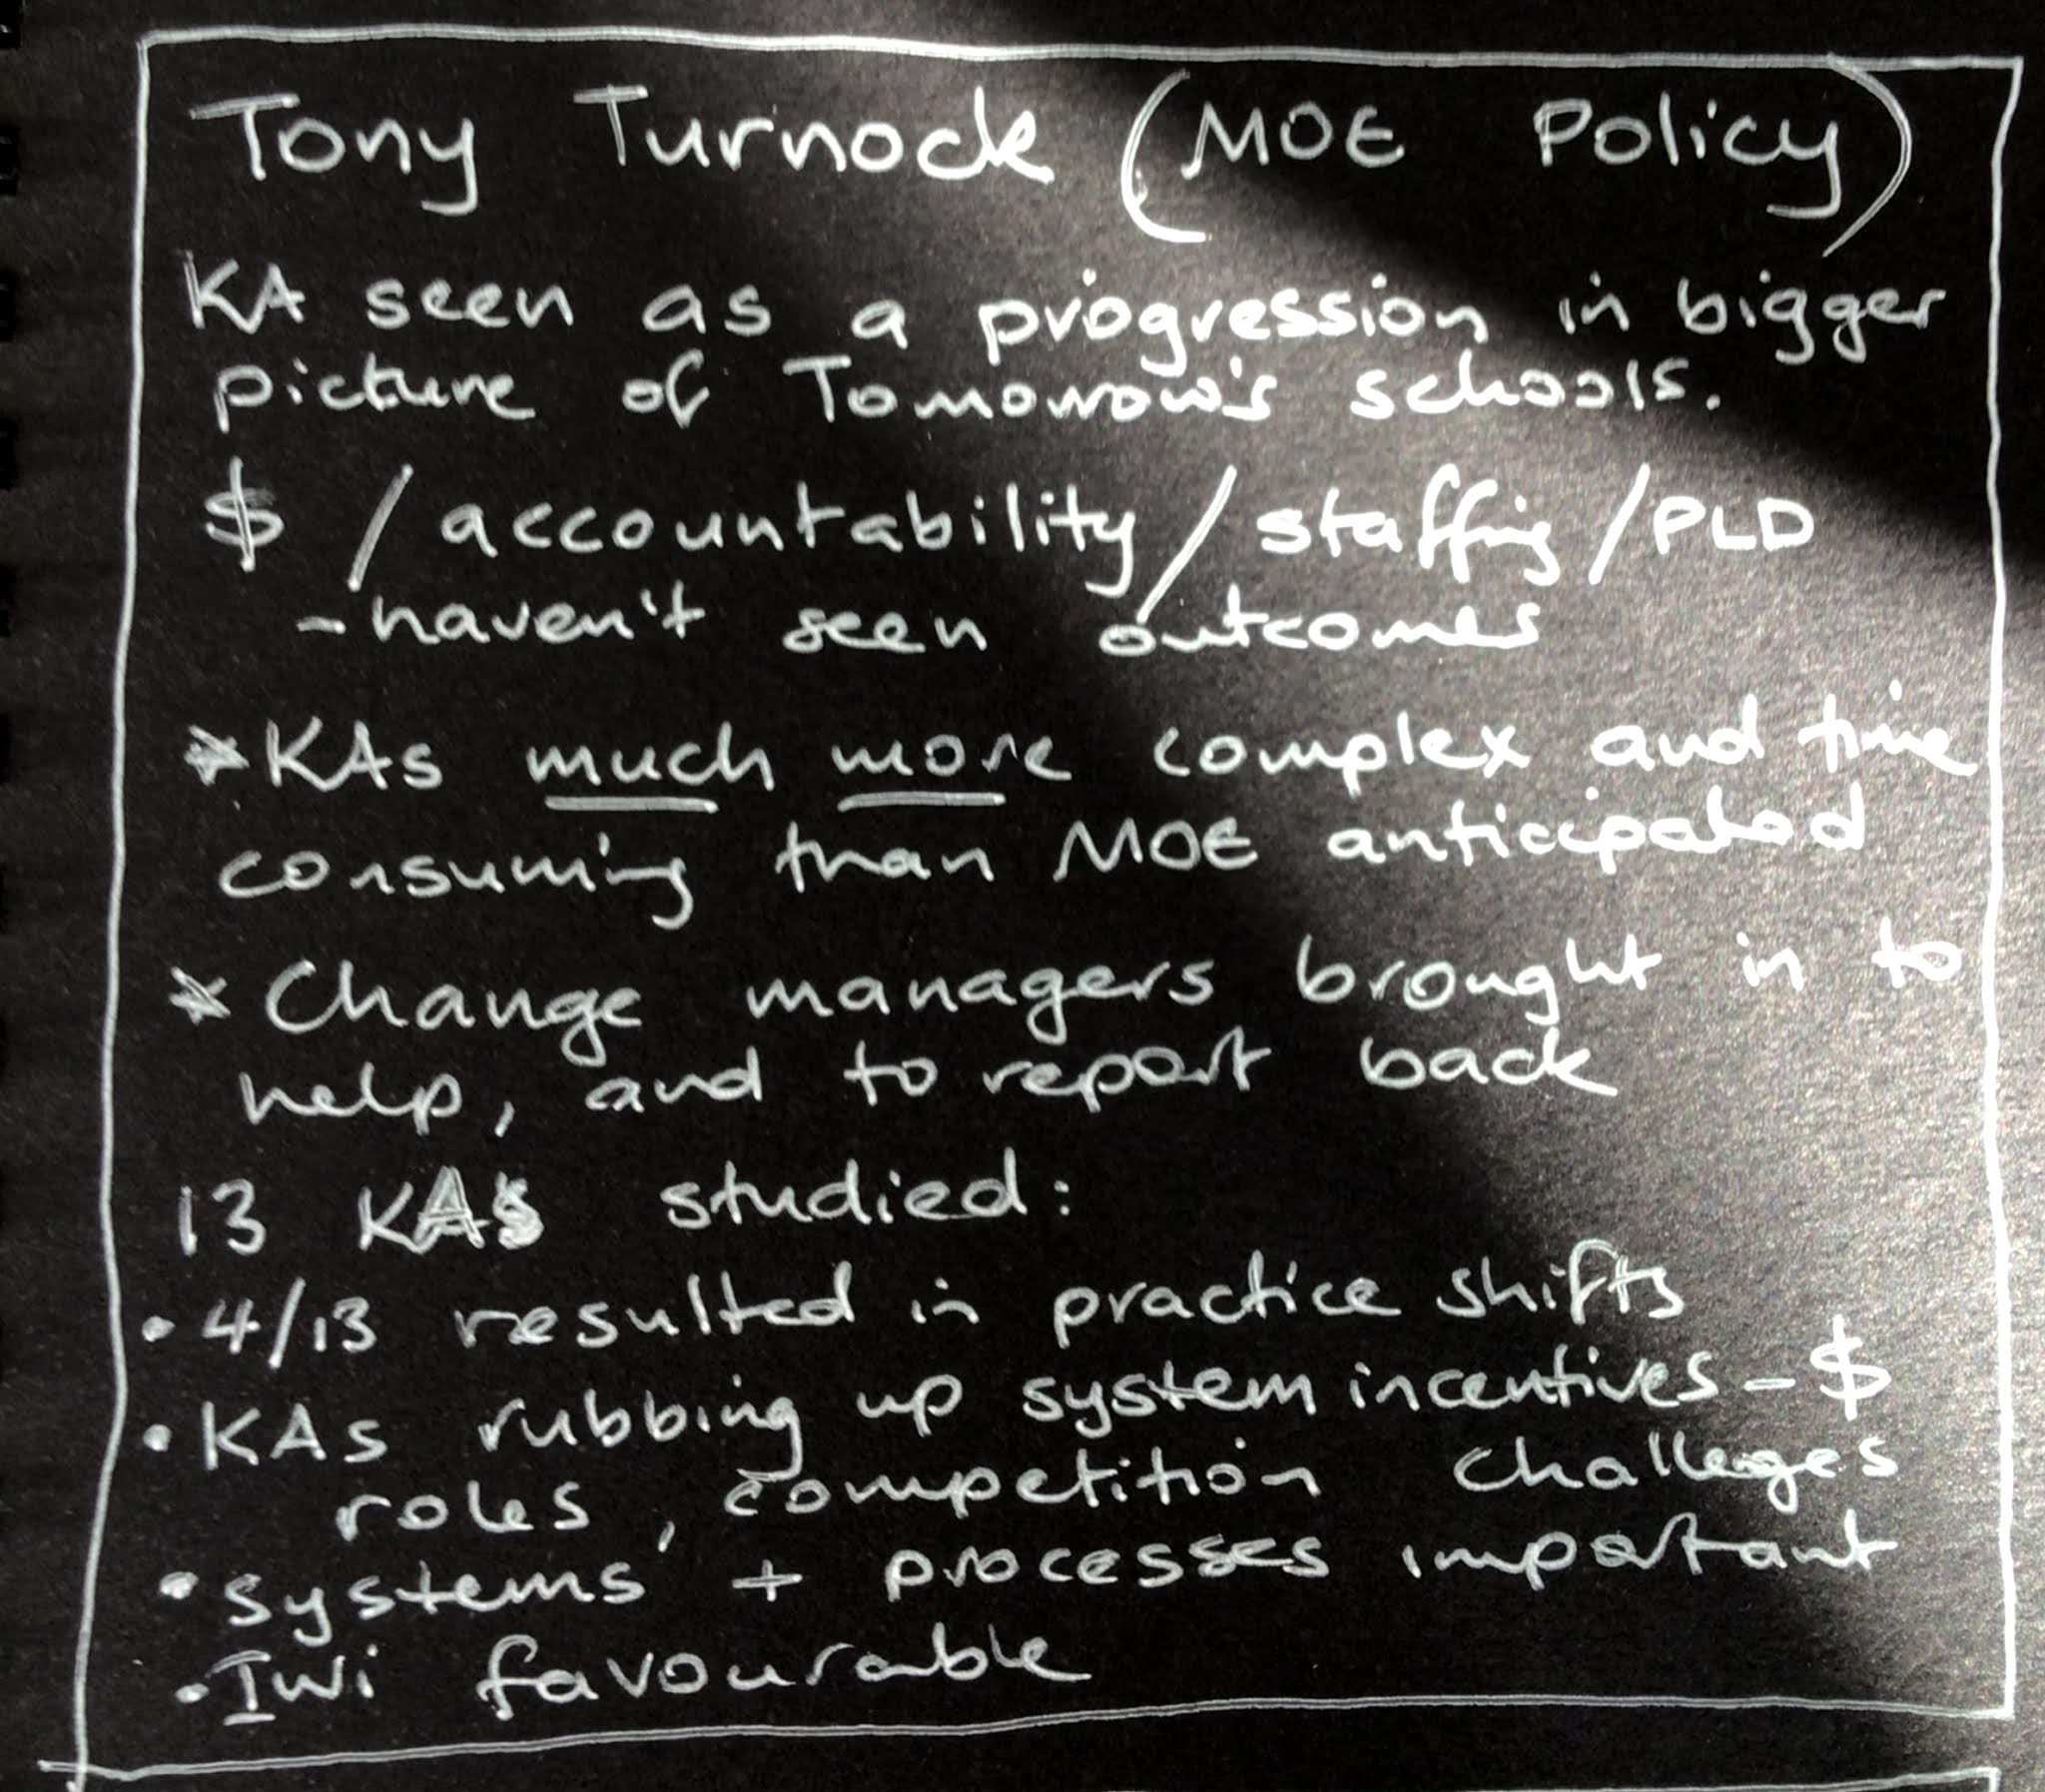 Tony Turnock (MOE Policy)
KA seen as a progression in bigger
picture of Tomorrow's schools.
$ / accountability / staffing / PLD
- haven't seen outcomes
* KAs much more complex and time
consuming than MOE anticipated
* Change managers brought in to
help, and to report back
13 KAs studied:
• 4/13 resulted in practice shifts
• KAs rubbing up system incentives - $
roles, competition challenges
• systems + processes important
• Iwi favourable